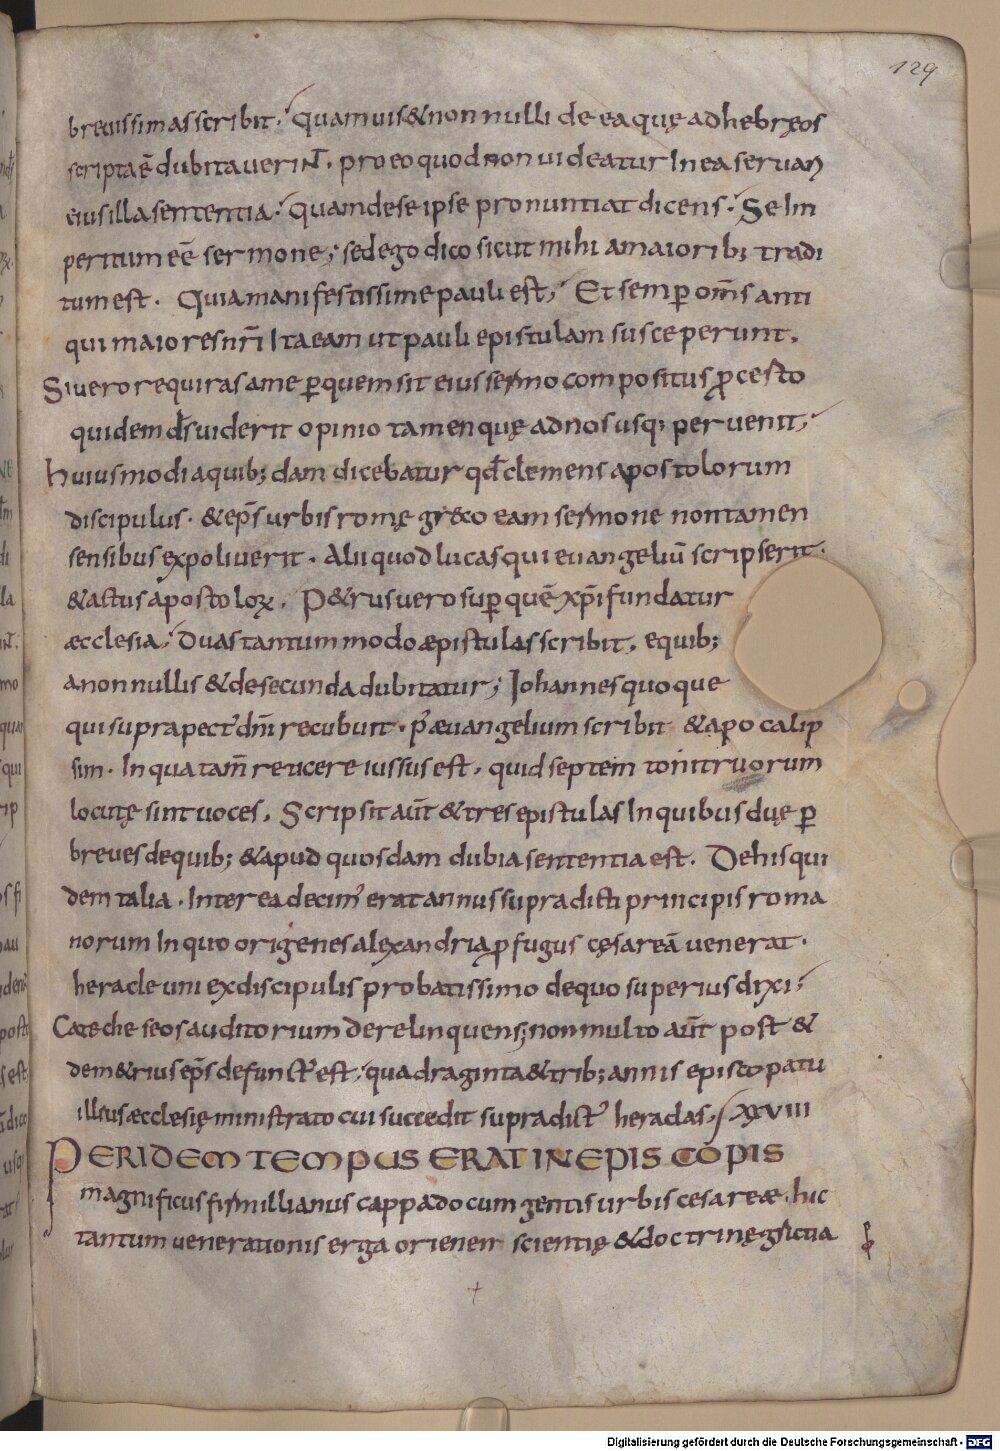 129
breuissimas scribit; Quamuis & nonnulli de ea quę ad hebręos
scripta ē dubitauerint. pro eo quod non uideatur In ea seruari
eius illa sententia; quam de se ipse pronuntiat dicens; Se Im
peritum eē sermone; sed ego dico sicut mihi a maiorib; tradi
tum est. Quia manifestissime pauli est; Et semꝑ om̄s anti
qui maiores nr̄i Ita eam ut pauli epistulam susceperunt.
Si uero requiras a me ꝑ quem sit eius sermo compositus ꝓ certo
quidem d̄s uiderit opinio tamen quę ad nos usq; peruenit;
huiusmodi a quib;dam dicebatur qđ clemens apostolorum
discipulus. & ep̄s urbis romę gr&co eam sermone non tamen
sensibus expoliuerit. Alii quod lucas qui euangeliū scripserit.
& actus apostoloꝝ. P&rus uero suꝑ quē xp̄i fundatur
æcclesia; Duas tantummodo æpistulas scribit. e quib;
a nonnullis & de secunda dubitatur; Iohannes quoque
qui supra pect' dn̄i recubuit. p' æuangelium scribit & apocalip
sim. In qua tam̄ reticere iussus est. quid septem tonitruorum
locutę sint uoces. Scripsit aūt & tres epistulas In quibus duę ꝑ
breues de quib; & apud quosdam dubia sententia est. De his qui
dem talia. Interea decim' erat annus supradicti principis roma
norum In quo origenes alexandria ꝓfugus cęsareā uenerat.
heracle uni ex discipulis probatissimo de quo superius dixi;
Catecheseos auditorium derelinquens; non multo aūt post &
dem&rius ep̄s defunct' est; quadraginta & trib; annis episcopatu
illius æcclesię ministrato cui succedit supradict' heraclas. XXVIII
PER IDEM TEMPUS ERAT IN EPISCOPIS
magnificus firmillianus cappadocum gentis urbis cesareæ. hic
tantum uenerationis erga orienem scientię & doctrinę gratia
Digitalisierung gefördert durch die Deutsche Forschungsgemeinschaft - DFG